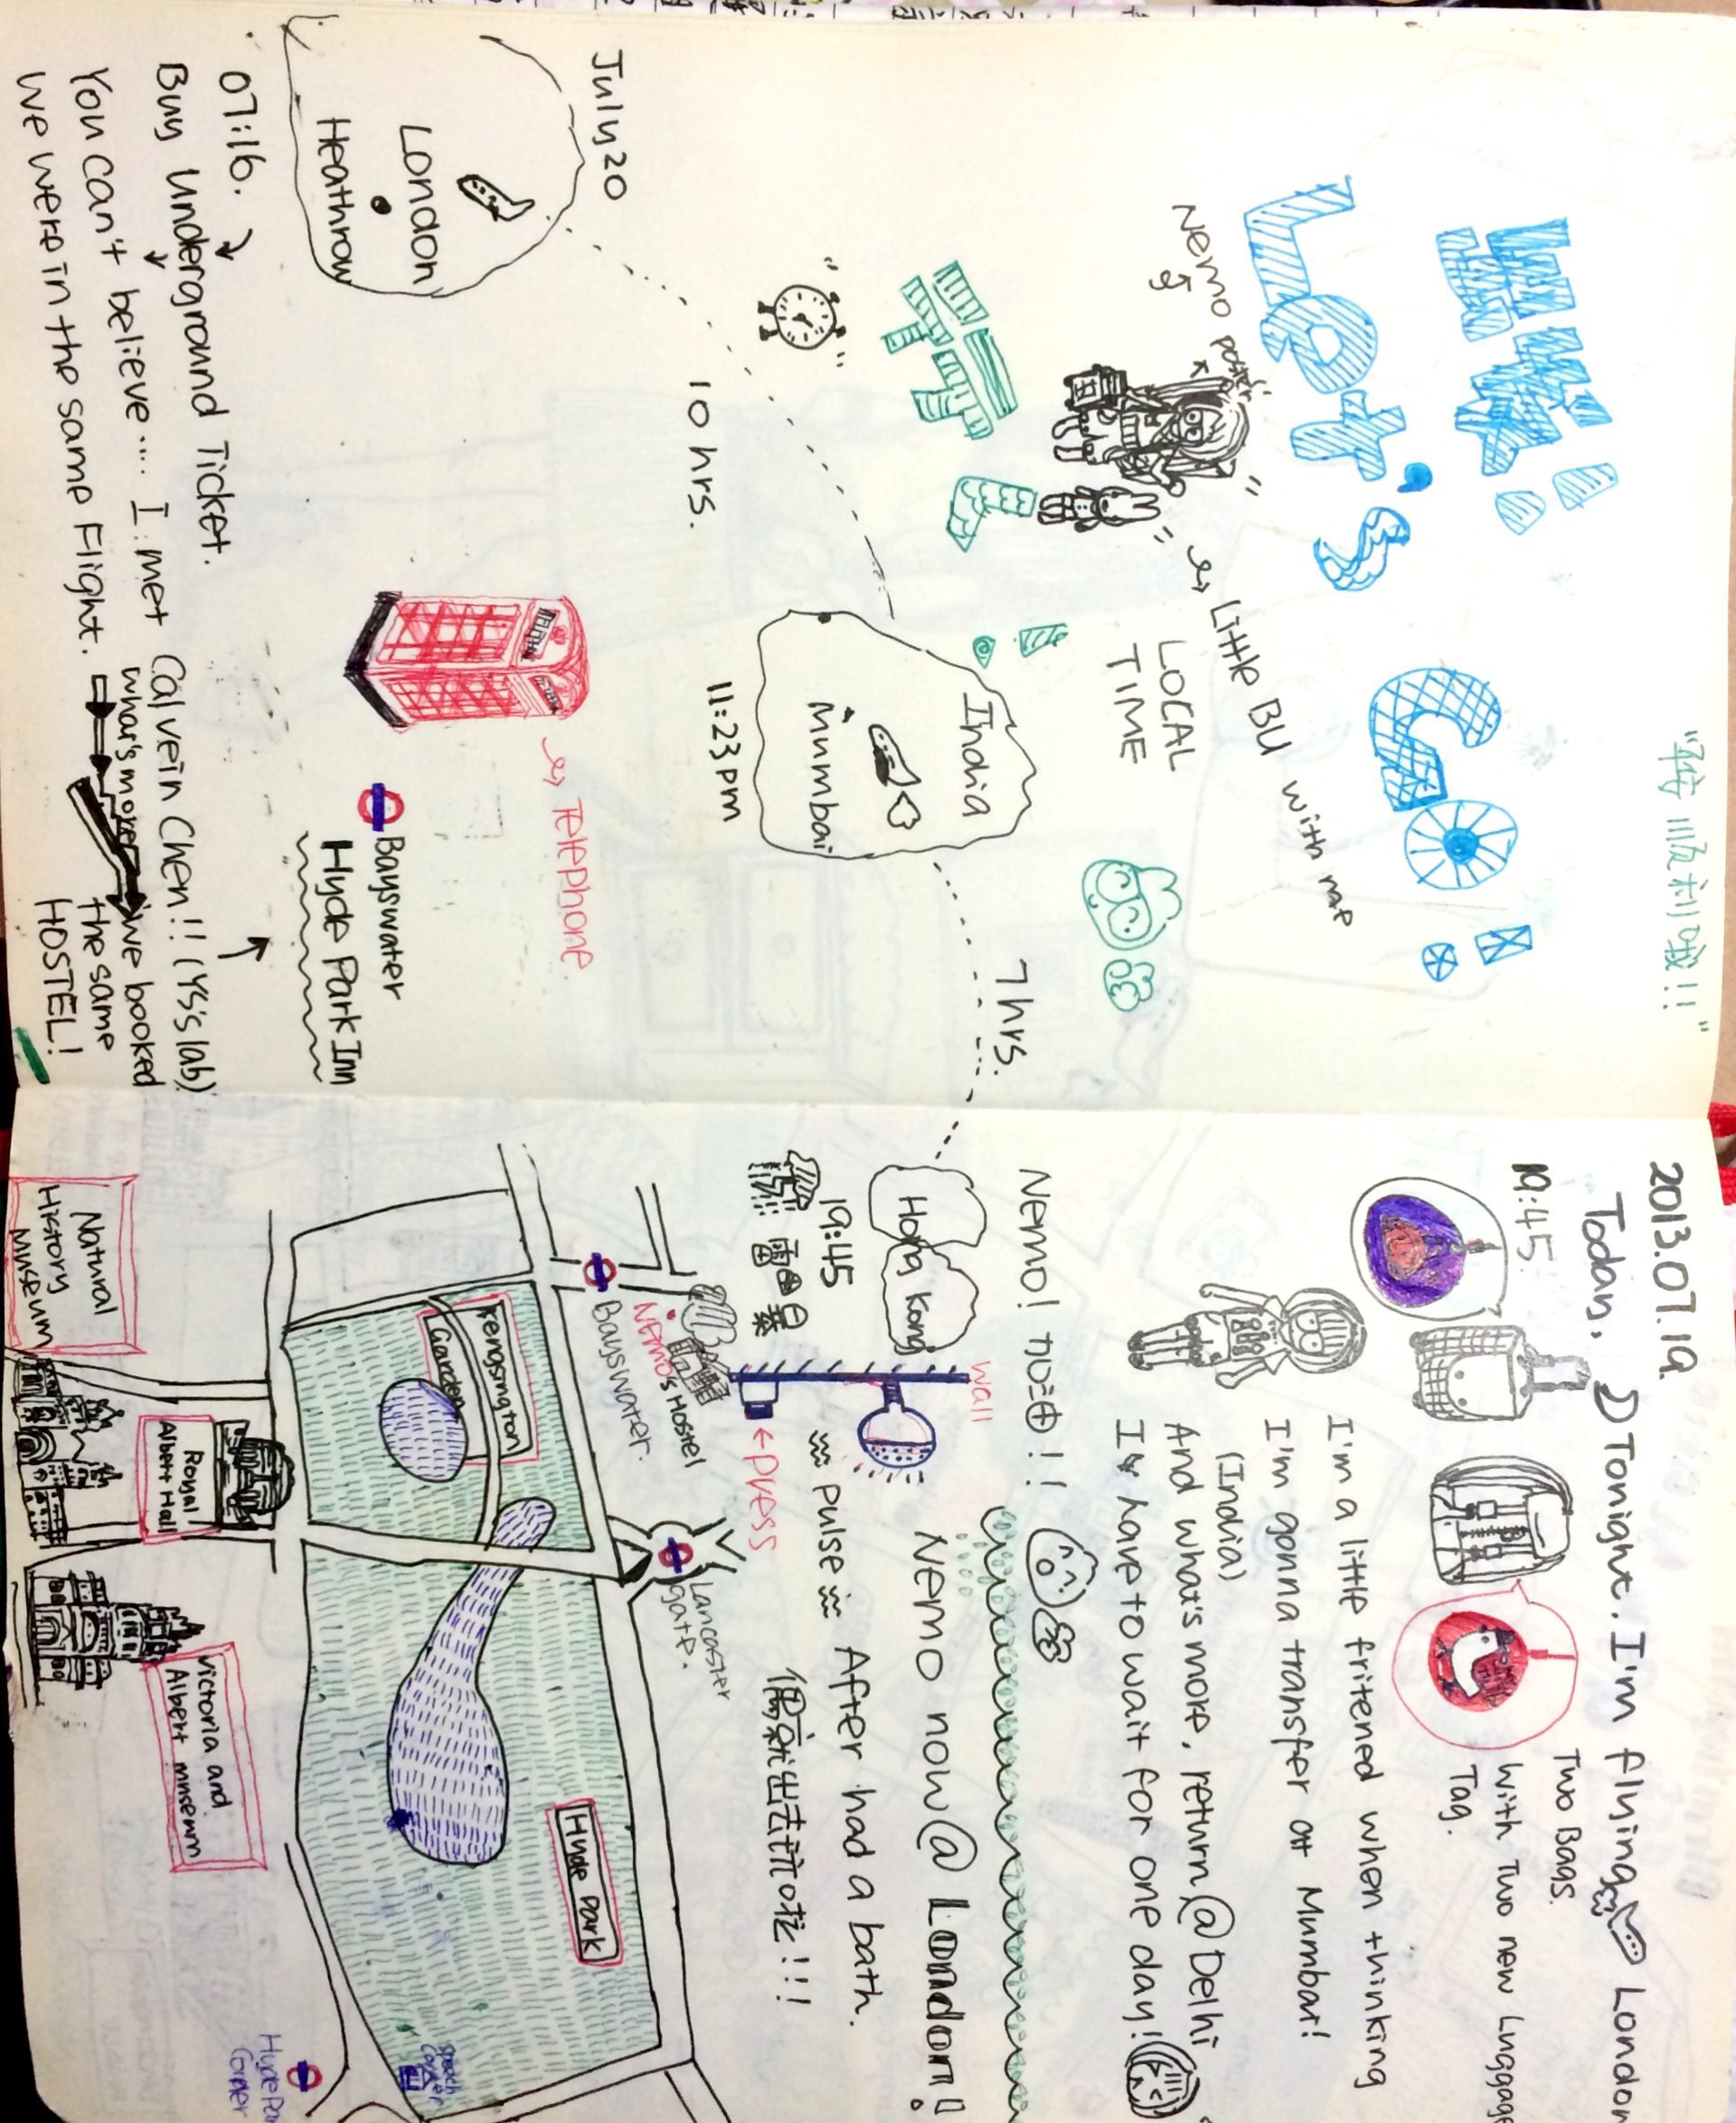 出發!!
Let's GO!!
Nemo
poster
Little BU with me
LOCAL
TIME
India
Mumbai
11:23pm
7 hrs.
10 hrs.
July 20
London
Heathrow
Telephone
Bayswater
Hyde Park Inn
07:16.
Buy Underground Ticket.
You can't believe..... I met Calvein Chen!! (YS's lab)
We were in the same Flight.
what's more
we booked
the same
HOSTEL!
2013.07.19.
Today. Tonight. I'm flying London
19:45
Two Bags.
with Two new Luggage
Tag.
I'm a little fritened when thinking
I'm gonna transfer at Mumbai!
(India)
And what's more, return@Delhi
I have to wait for one day!!
Nemo! カロ油!!
Hong Kong
19:45
Nemo now@ London!!
wall
←press
pulse
After had a bath.
偶就出去玩啦!!!
Nemo's Hostel
Bayswater.
Lancaster
gate.
Kengsington
Garden
Hyde Park
Speach
Corner
Hyde Par
Corner
Royal
Albert Hall
Natural
History
Museum
Victoria and
Albert museum